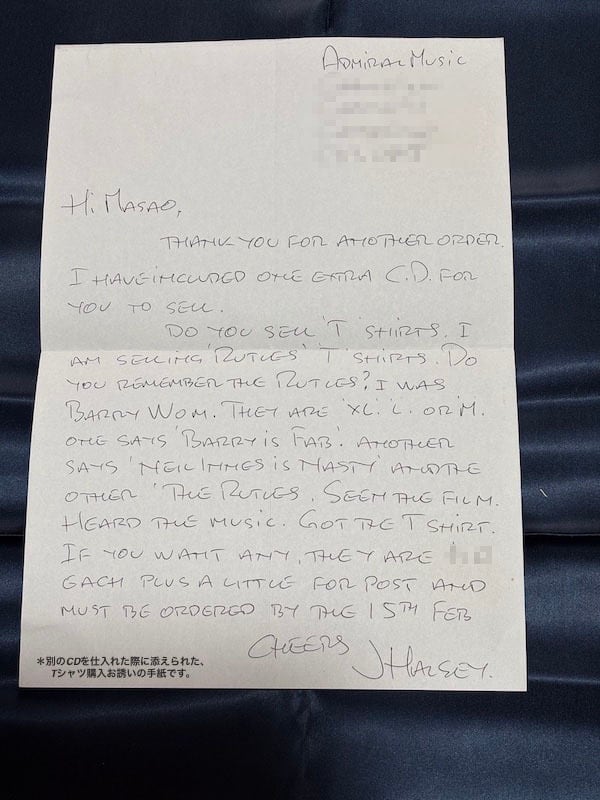 ADMIRAL MUSIC
Hi MASAO,
THANK YOU FOR ANOTHER ORDER.
I HAVE INCLUDED ONE EXTRA C.D. FOR
YOU TO SELL.
DO YOU SELL 'T' SHIRTS. I
AM SELLING 'RUTLES' 'T' SHIRTS. DO
YOU REMEMBER THE RUTLES? I WAS
BARRY WOM. THEY ARE 'XL'. 'L'. OR 'M'.
ONE SAYS 'BARRY iS FAB'. ANOTHER
SAYS 'NEIL INNES iS NASTY' AND THE
OTHER 'THE RUTLES. SEEN THE FILM.
HEARD THE MUSIC. GOT THE T SHIRT.
IF YOU WANT ANY, THEY ARE
EACH PLUS A LITTLE FOR POST AND
MUST BE ORDERED BY THE 15TH FEB
CHEERS
JHALSEY.
*別のCDを仕入れた際に添えられた、
Tシャツ購入お誘いの手紙です。